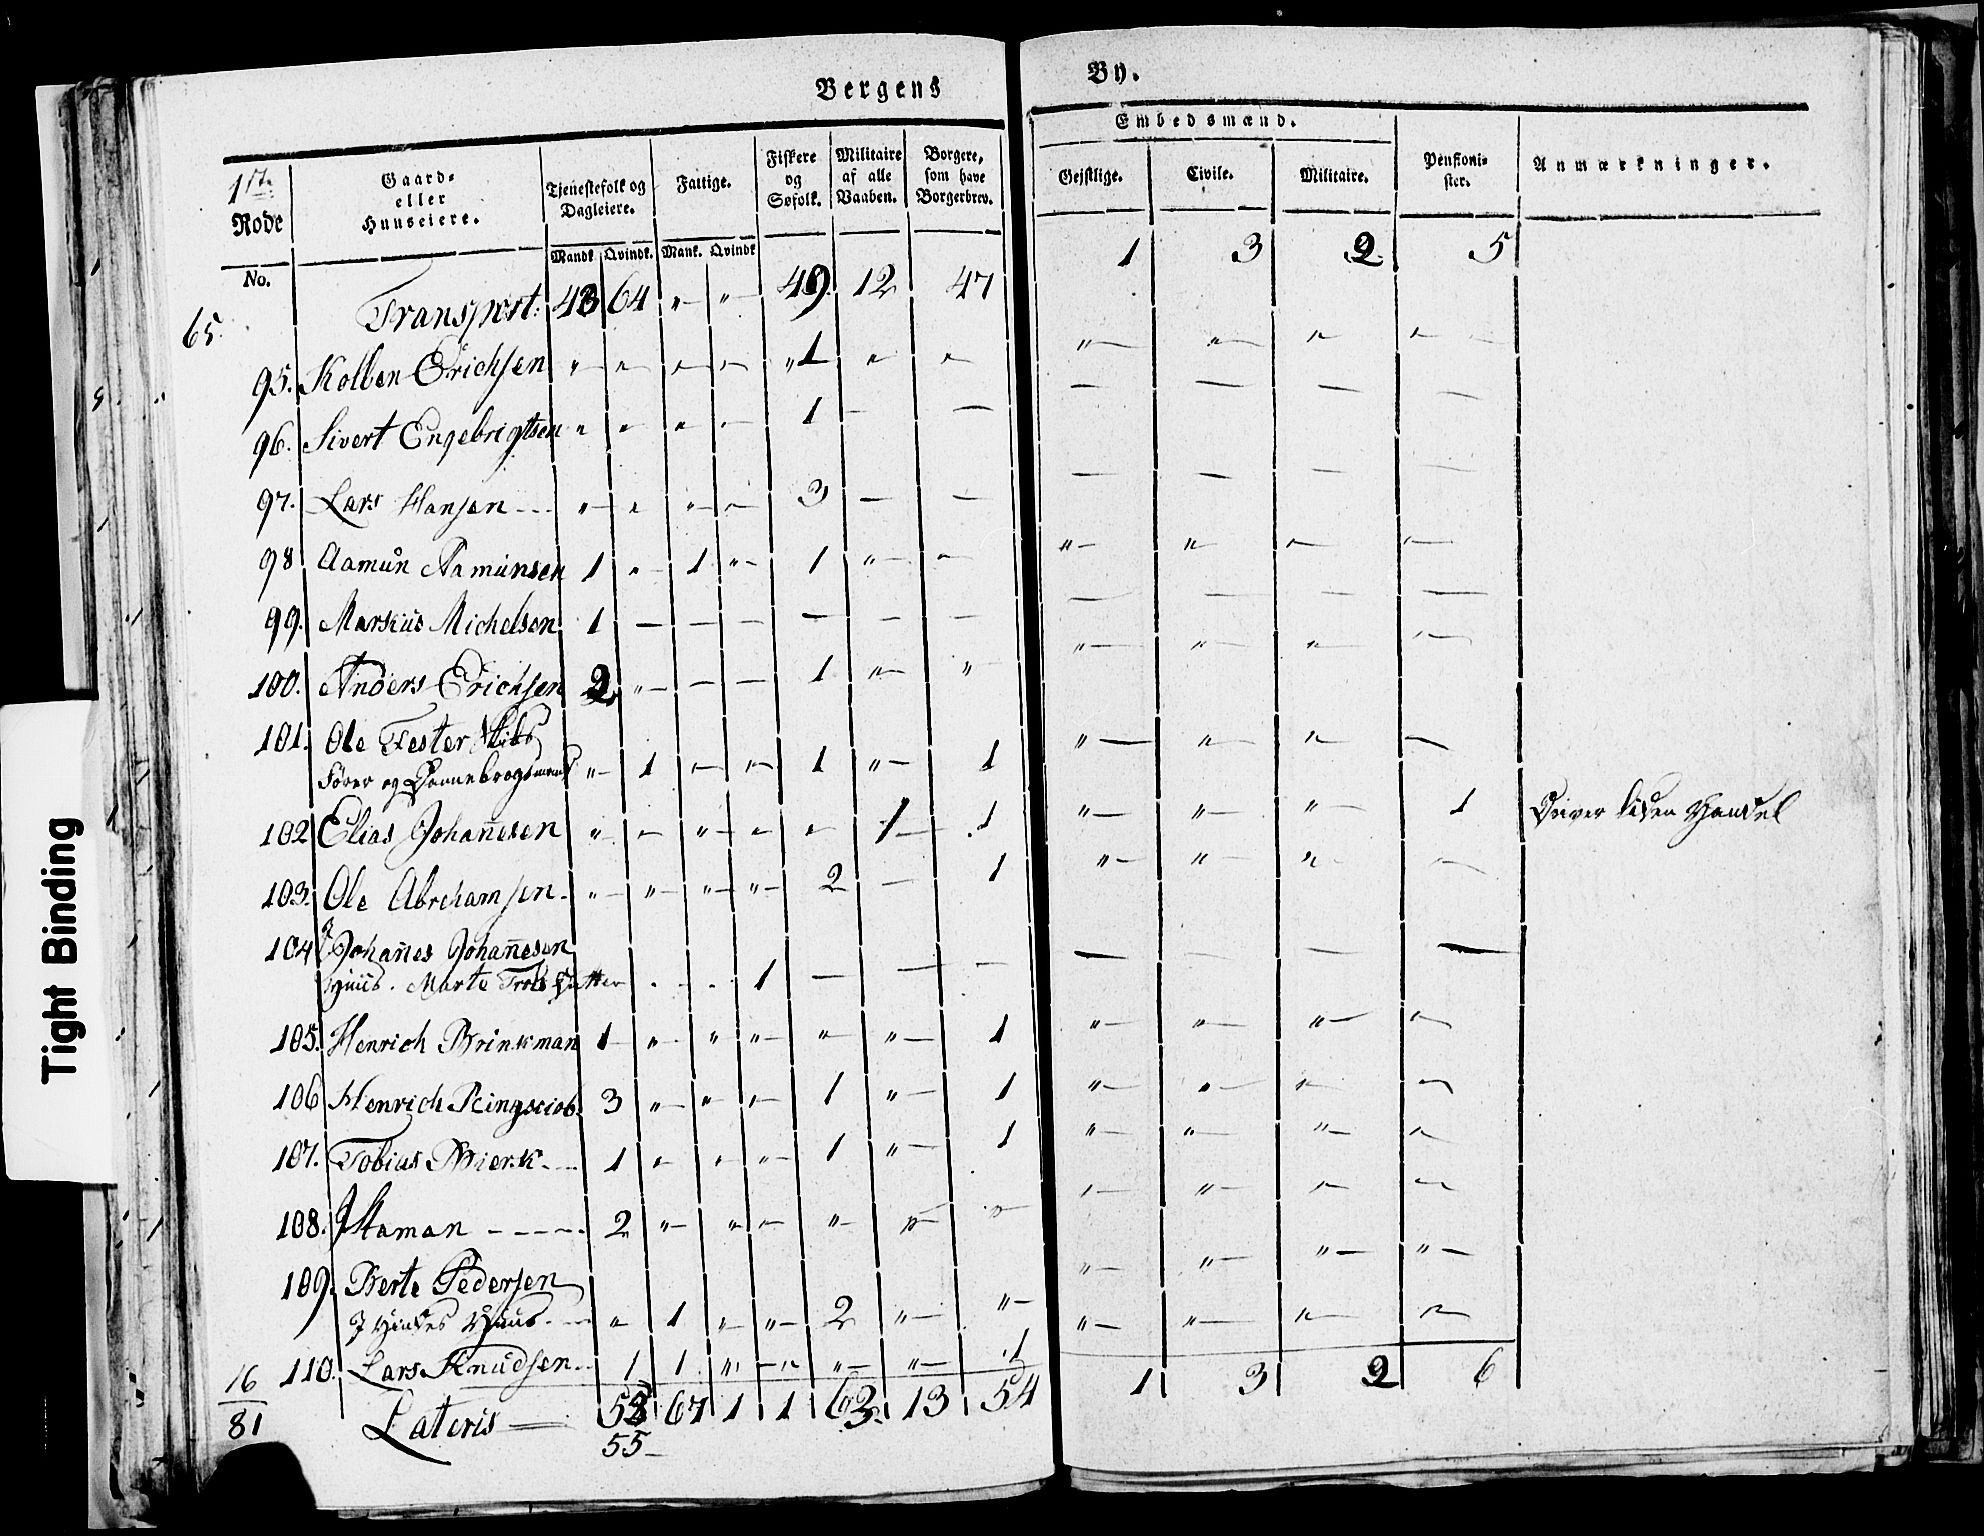 Bergens By.
1ste Rode No. | Gaard- eller Huuseiere. | Tjenestefolk og Dagleiere. Mandk. Qvindk. | Fattige. Mank. Qvindk | Fiskere og Søfolk. | Militaire af alle Vaaben. | Borgere, som have Borgerbrev. | Embedsmænd. Gejstlige. Civile. Militaire. | Pensionister. | Anmærkninger.
65. Transport: 43 64 „ „ 49. 12 47 1 3 2 5
95. Kolben Erichsen „ „ „ „ „1 „ „ „ „ „ „
96. Sivert Engebrigtsen „ „ „ „ 1 — — — — — —
97. Lars Hansen „ „ „ „ 3 — — — — — —
98 Aamun Aamunsen 1 „ 1 „ 1 „ „ „ „ „ „
99. Markus Michelsen 1 — — — — — — — — — —
100. Anders Erichsen 2 „ — — 1 „ „ „ „ „ „
101. Ole Fester Skibs
Fører og Dannebrogsmand „ 1 „ „ 1 „ 1 „ „ „ „
102 Elias Johannesen „ „ „ „ „ 1 1 „ „ „ 1 Driver liden Handel
103. Ole Abrehamsen „ „ „ „ 2 — 1 „ „ „ „
104 Johannes Johannesen
Huus. Marte Trols Datter . . . 1 — — — — — — —
105. Henrich Brinkman 1 „ „ „ „ „ 1 „ „ „ „
106 Henrich Ringsciob. 3 „ „ „ 1 „ 1 „ „ „ „
107. Tobias Bierk 1 „ „ „ 1 „ 1 „ „ „ „
108. Haman 2 „ „ „ „ „ „ „ „ „ „
109. Berte Pedersen
I Hindes Huus „ 1 „ „ 2 „ „ „ „ „ „
110. Lars Knudsen 1 1 „ „ „ „ 1 „ „ „ „
16
81 Lateris 53 67 1 1 63. 13 54 1 3 2 6
55
Tight Binding